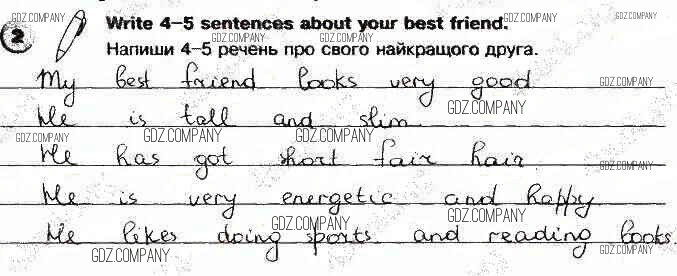 2 Write 4–5 sentences about your best friend.
Напиши 4–5 речень про свого найкращого друга.
My best friend looks very good
He is tall and slim
He has got short fair hair.
He is very energetic and happy
He likes doing sports and reading books.
GDZ.COMPANY
GDZ.COMPANY
GDZ.COMPANY
GDZ.COMPANY
GDZ.COMPANY
GDZ.COMPANY
GDZ.COMPANY
GDZ.COMPANY
GDZ.COMPANY
GDZ.COMPANY
GDZ.COMPANY
GDZ.COMPANY
GDZ.COMPANY